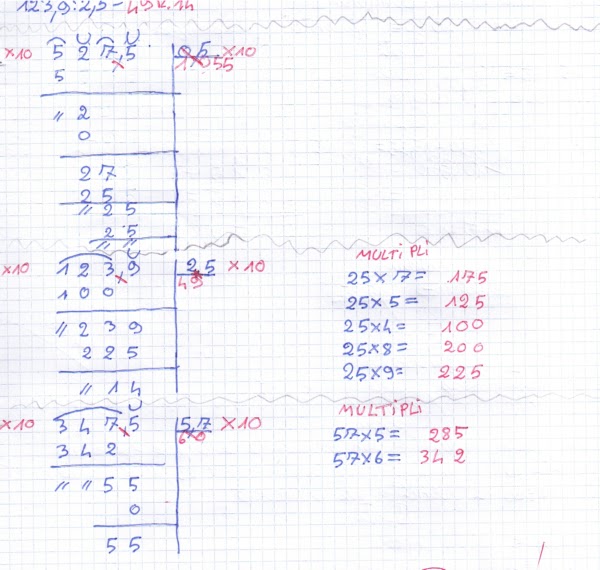 123,9:2,5= 49 R.14
×10 5 2 7,5 0,5 ×10
5 1055
" 2
0
2 7
2 5
" 2 5
2 5
" "
×10 1 2 3,9 2,5 ×10
1 0 0 49
" 2 3 9
2 2 5
" 1 4
MULTIPLI
25×7= 175
25×5= 125
25×4= 100
25×8= 200
25×9= 225
×10 3 4 7,5 5,7 ×10
3 4 2 60
" " 5 5
0
5 5
MULTIPLI
57×5= 285
57×6= 342